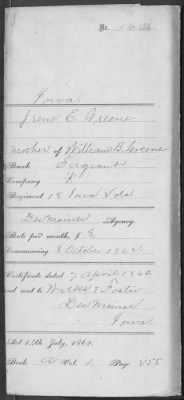 No. 1436
Iowa
Irene E. Greene
mother of William B. Greene
Rank Sergeant
Company F
Regiment 18 Iowa Vols
Des Moines Agency.
Rate per month, $ 8.
Commencing 8 October 1862
Certificate dated 7 April 1863
and sent to Weeks & Foster
Des Moines
Iowa
Act 14th July, 1862.
Book A Vol. 1 Page 255